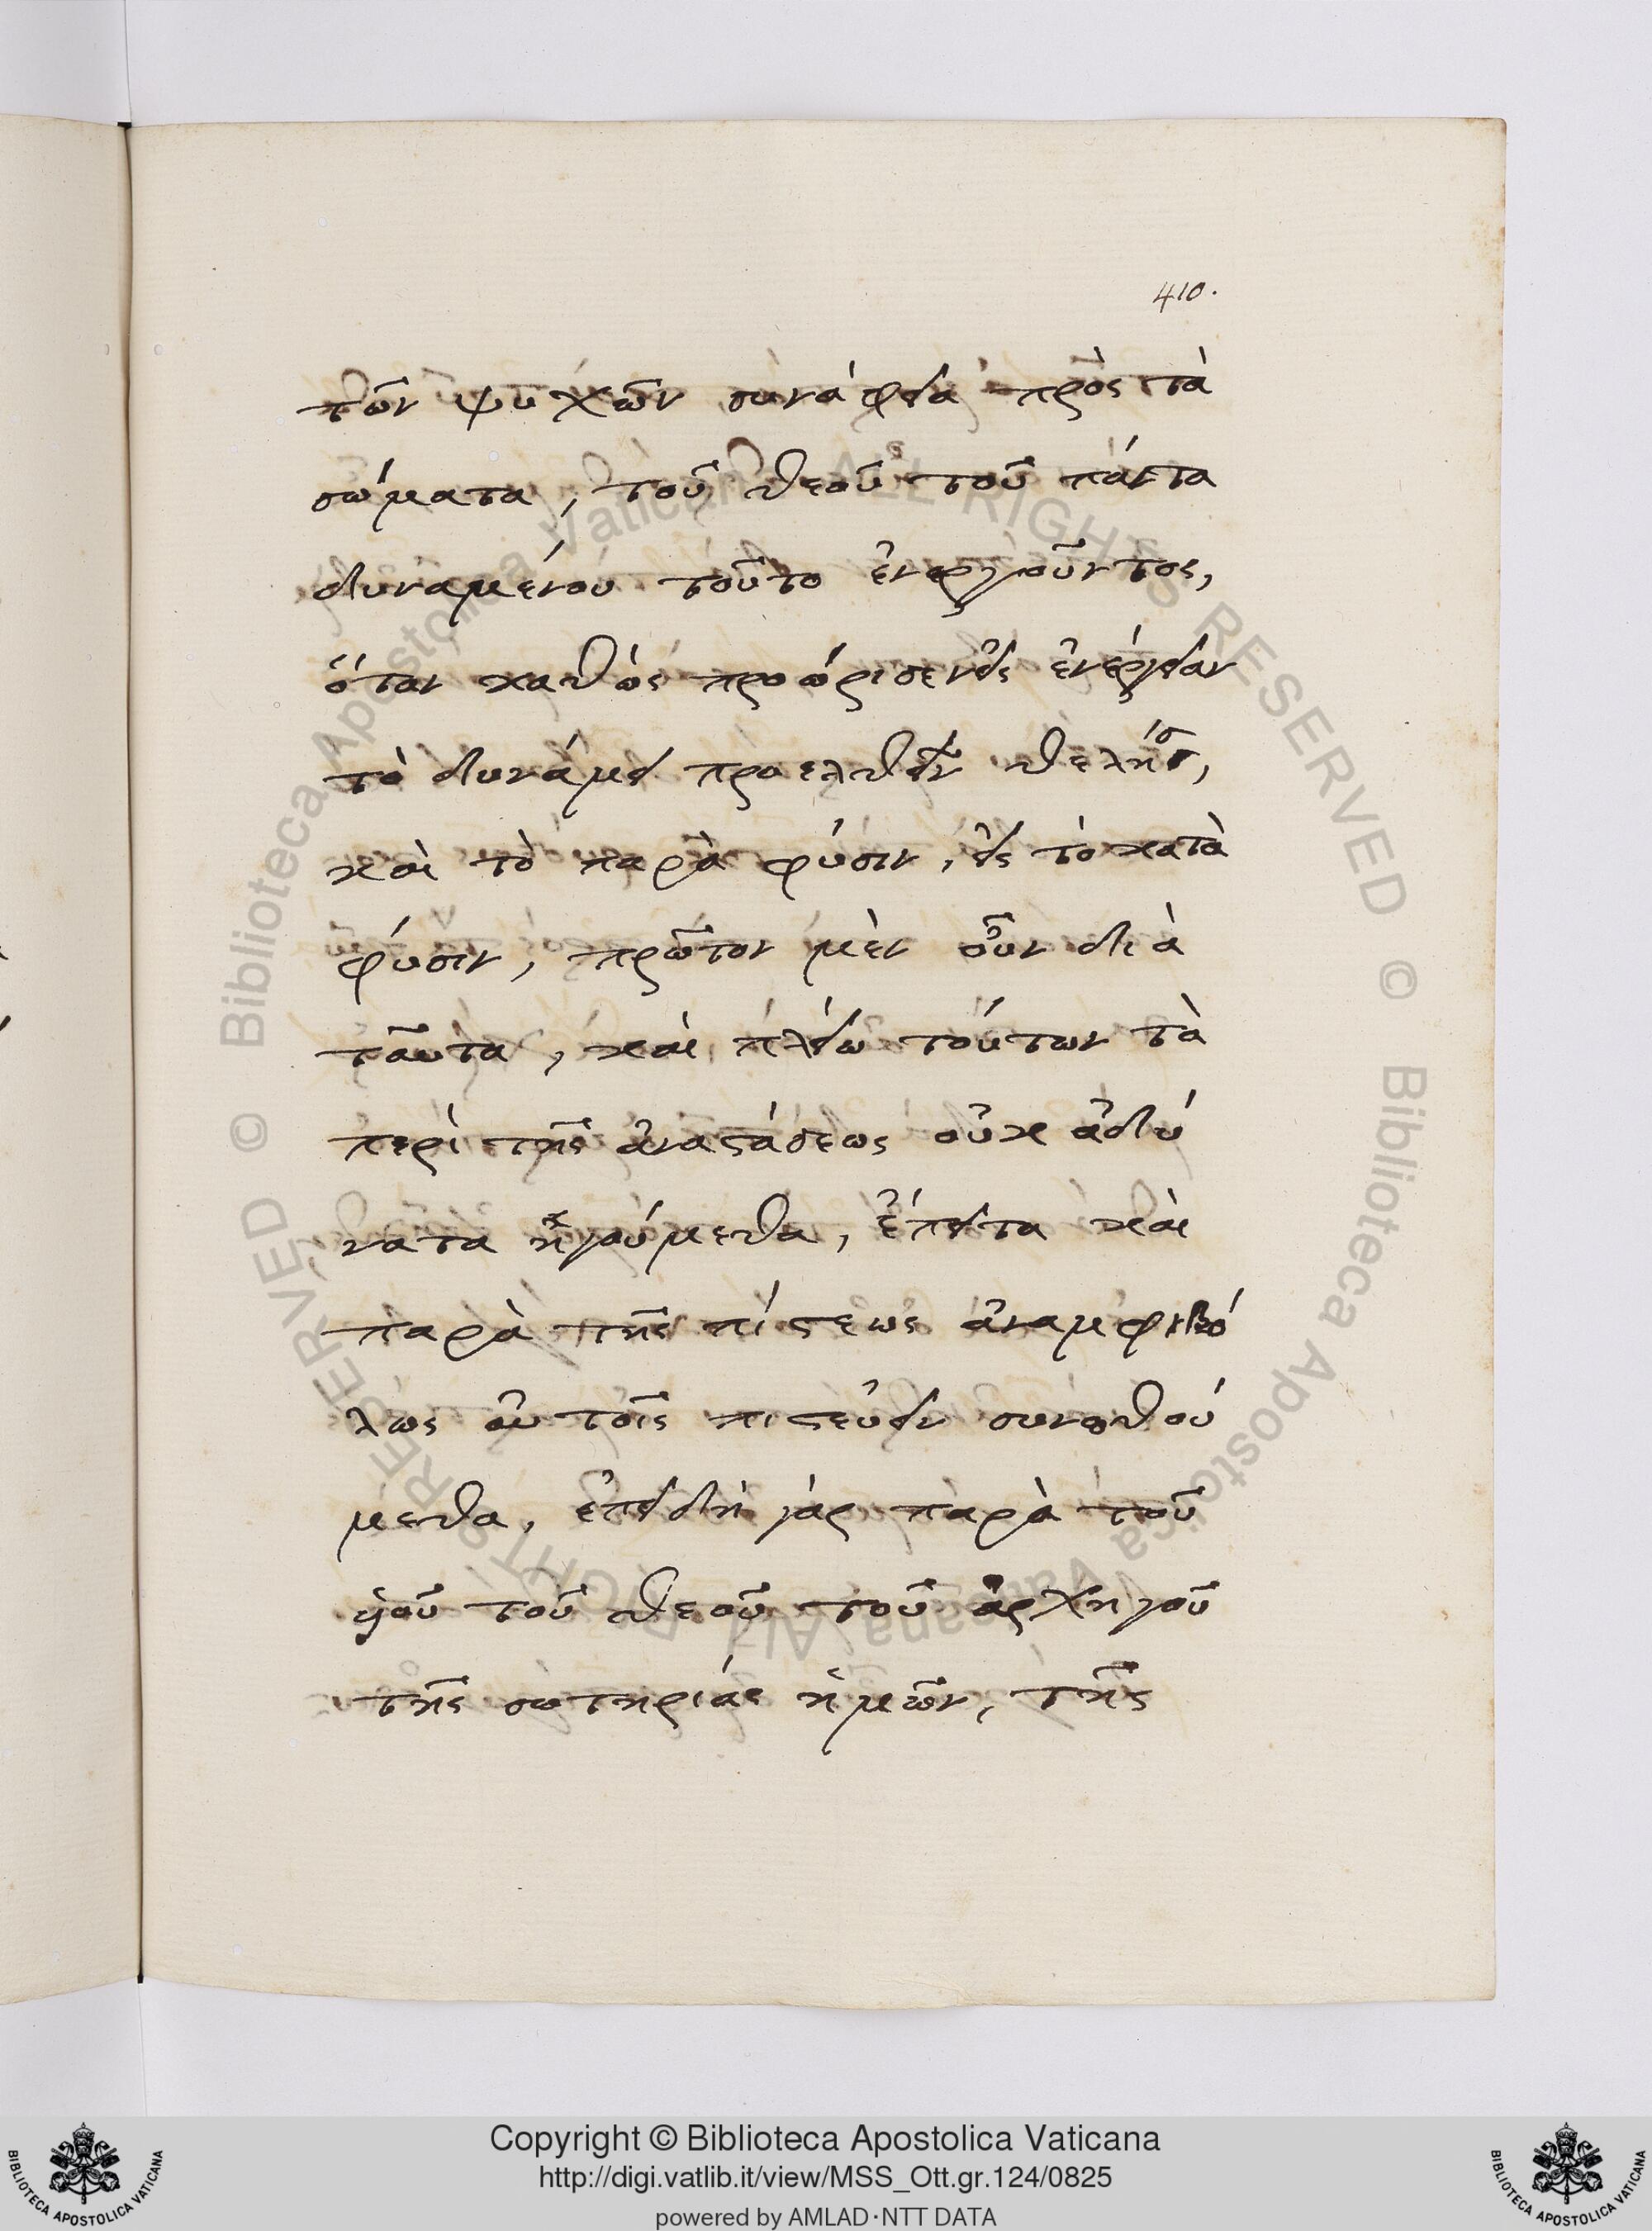 410.
τῶν ψυχῶν συνάφεια πρὸς τὰ
σώματα, τοῦ θεοῦ τοῦ πάντα
δυναμένου τοῦτο ἐνεργοῦντος,
ὅταν καθὼς προώρισεν εἰς ἐνέργειαν
τὸ δυνάμει προελθεῖν θελήσ,
καὶ τὸ παρὰ φύσιν, εἰς τὸ κατὰ
φύσιν, πρῶτον μὲν οὖν διὰ
ταῦτα, καὶ πλείω τούτων τὰ
περὶ τῆς ἀναστάσεως οὐκ ἀδύ
νατα ἡγούμεθα, ἔπειτα καὶ
παρὰ τῆς πίστεως ἀναμφιβό
λως αὐτοῖς πιστεύειν συνωθού
μεθα, ἐπειδὴ γὰρ παρὰ τοῦ
ὑιοῦ τοῦ θεοῦ τοῦ ἀρχηγοῦ
τῆς σωτηρίας ἡμῶν, τῆς
© Biblioteca Apostolica Vaticana ALL RIGHTS RESERVED
© Biblioteca Apostolica Vaticana ALL RIGHTS RESERVED
Copyright © Biblioteca Apostolica Vaticana
http://digi.vatlib.it/view/MSS_Ott.gr.124/0825
powered by AMLAD·NTT DATA
BIBLIOTECA APOSTOLICA VATICANA
BIBLIOTECA APOSTOLICA VATICANA